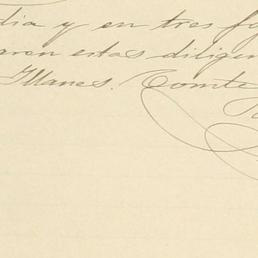 dia y en tres fo
aron estas diligen
Illanes. Comte